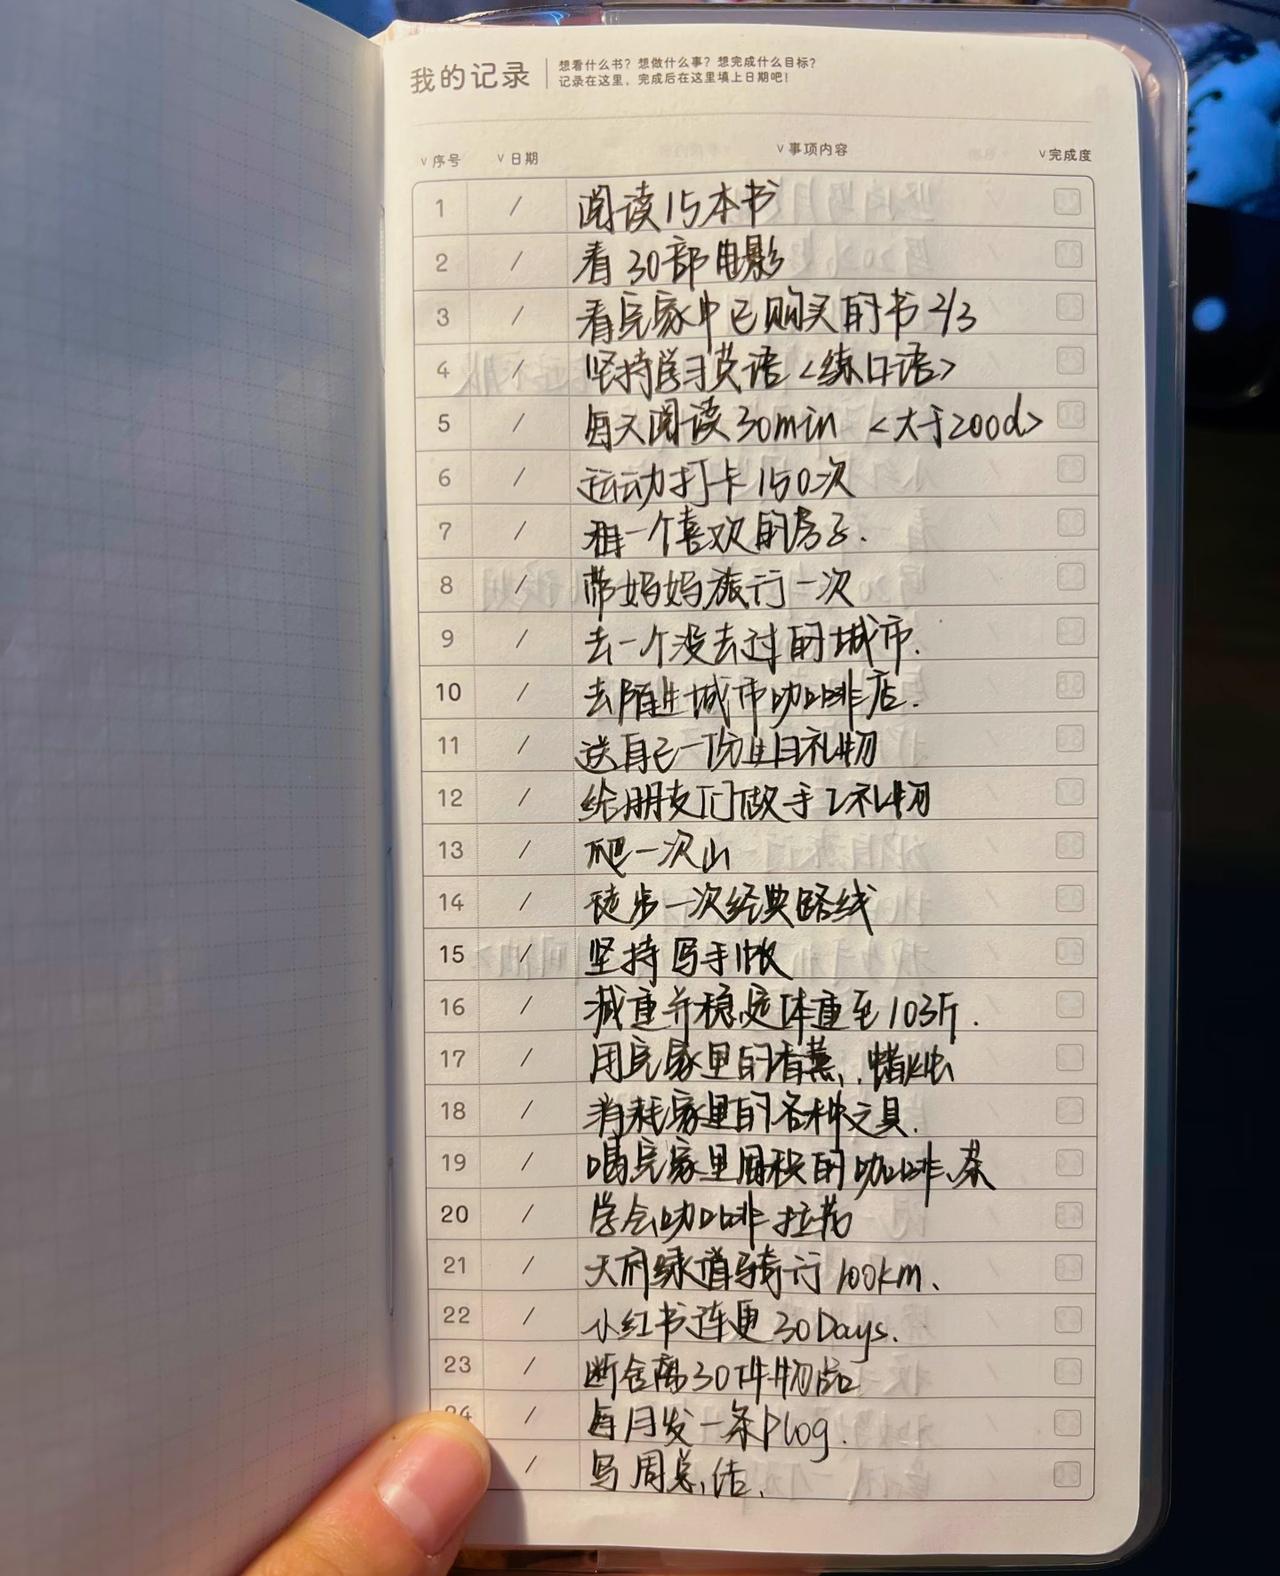 我的记录
想看什么书？想做什么事？想完成什么目标？
记录在这里，完成后在这里填上日期吧！
∨序号 ∨日期 ∨事项内容 ∨完成度
1 / 阅读15本书
2 / 看30部电影
3 / 看完家中已购买的书2/3
4 / 坚持学习英语<练口语>
5 / 每天阅读30min <大于200d>
6 / 运动打卡150次
7 / 租一个喜欢的房子.
8 / 带妈妈旅行一次
9 / 去一个没去过的城市.
10 / 去陌生城市咖啡店.
11 / 送自己一份生日礼物
12 / 给朋友们做手工礼物
13 / 爬一次山
14 / 徒步一次经典路线
15 / 坚持写手帐
16 / 减重并稳定体重至103斤.
17 / 用完家里的香薰、蜡烛
18 / 消耗家里的各种文具.
19 / 喝完家里囤积的咖啡、茶
20 / 学会咖啡拉花
21 / 天府绿道骑行100km.
22 / 小红书连更30Days.
23 / 断舍离30件物品
24 / 每月发一条Plog.
/ 写周总结.